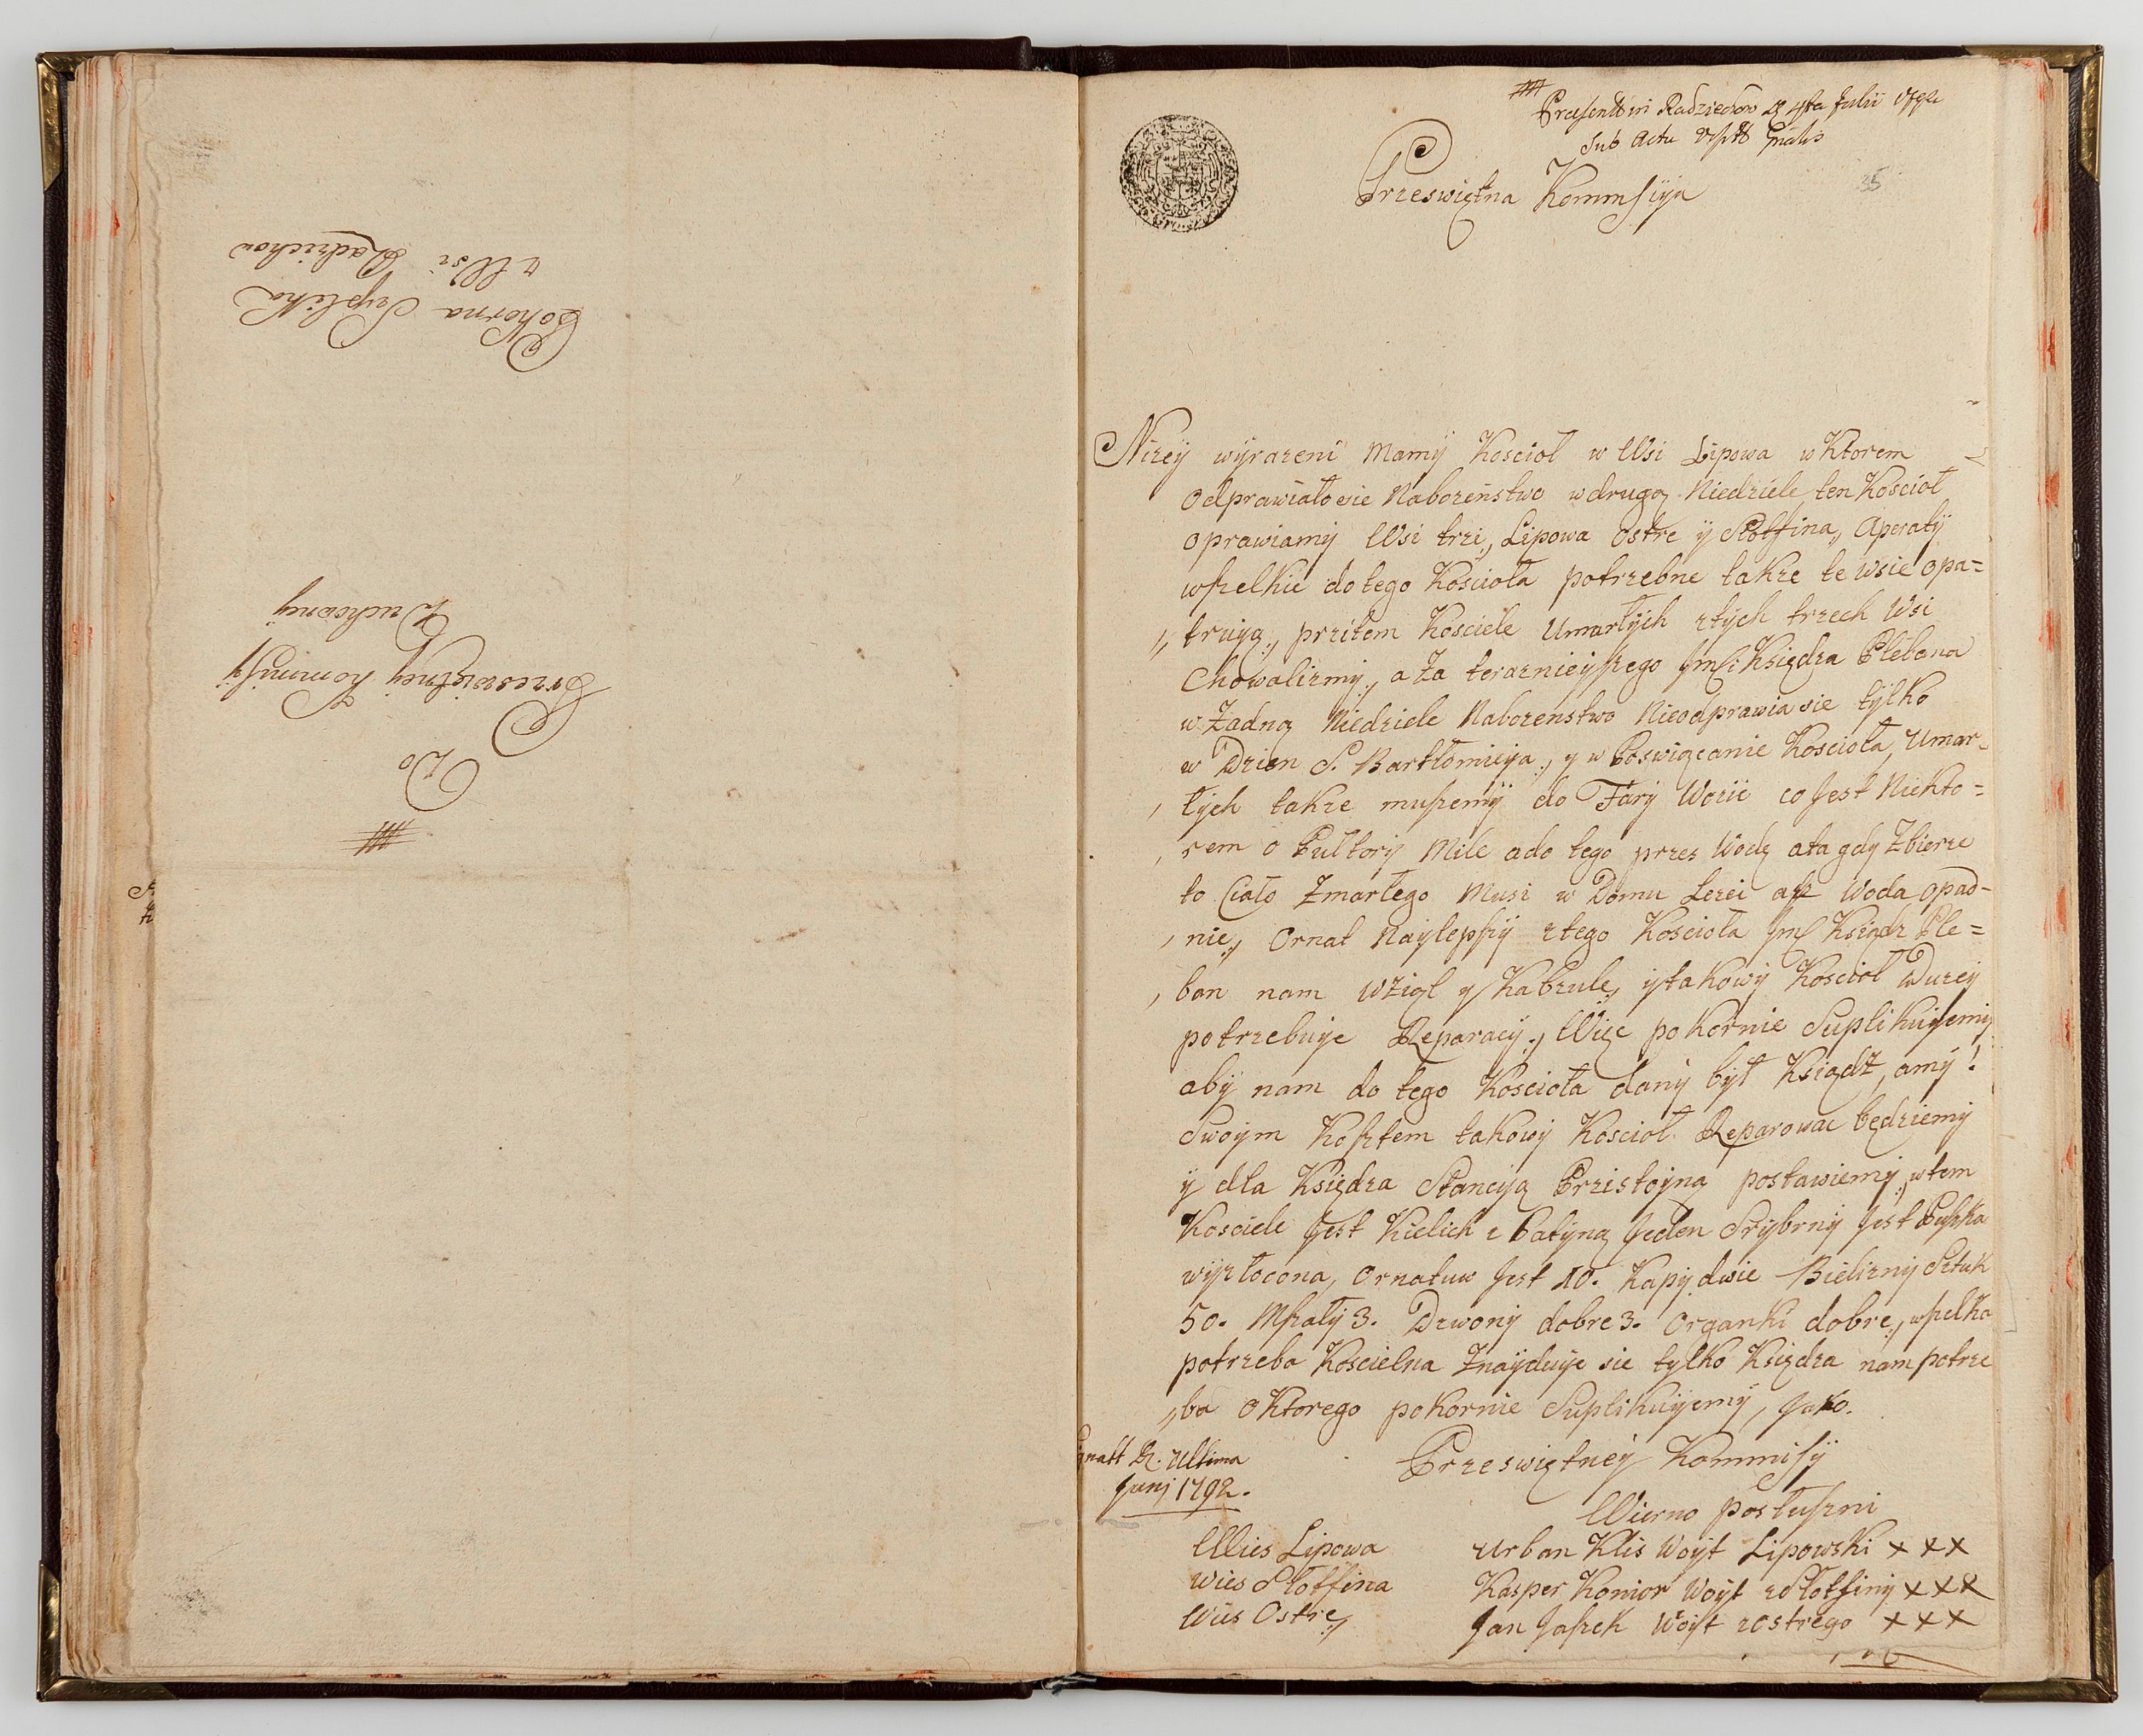 Pokorna Suplika
z Wsi Radziechow
Do
Przeświętney Kommisyi
Duchowney
Praesentt in Radziechow D 4ta Julii 1792
Sub Actu
35
Przeswiętna Kommsÿja
Nizeÿ wÿrazeni Mamÿ Koscioł w Wsi Lipowa w Ktorem
Odprawiało sie Nabozeństwo w drugą Niedziele ten Koscioł
oprawiamÿ Wsi trzi, Lipowa Ostre ÿ Słotfina, Aperatÿ
wszelkie do tego Kościoła potrzebne takze te wsie opa=
„trują, przitem Kosciele Umarłÿch ztÿch trzech Wsi
Chowalizmÿ, a Za teraznieÿszego Jmsci Księdza Plebana
w Żadną Niedziele Nabozenstwo Nieodprawia sie tÿlko
w Dzien S. Bartłomieÿa, y w Poswiącanie Kościoła, Umar-
łÿch takze muszemÿ do Farÿ Wozić co Jest Niekto=
rem o Pułtorÿ Mile a do tego przez Wodę a ta gdÿ Zbierze
to Ciało Zmarłego Musi w Domu Lezeć asz Woda opad-
nie, Ornat Naylepszÿ z tego Kościoła Jmsc Ksiądz Ple=
ban nam Wziął y Kabzule, ÿ takowÿ Koscioł Duzeÿ
potrzebuje Reparacÿ, Więc pokornie Suplikujemÿ
abÿ nam do tego Kościoła danÿ bÿł Ksiądz, a mÿ!
Swoÿm Kosztem takowÿ Koscioł Reparowac będziemÿ
ÿ dla Księdza Stancÿą Przistoÿną postawiemÿ, w tem
Kosciele Jest Kielich z Patÿną Jeden Srÿbrnÿ Jest Puszka
wÿzłocona, Ornatuw Jest 10. Kapÿ dwie Bieliznÿ Sztuk
50. Mszałÿ 3. Dzwonÿ dobre 3. Organki dobre, wszelka
potrzeba Koscielna Znaÿduje sie tylko Księdza nam potrze
„ba o Ktorego pokornie Suplikujemÿ, Jako.
Przeswiętneÿ Kommisÿ
gnatt D. Ultima
Junj 1792.
Wierno posłuszni
Wies Lipowa Urban Klis Woÿt Lipowski x x x
Wies Słotfina Kasper Konior Woÿt z Słotfinÿ x x x
Wies Ostre, Jan Jaszek Woÿt z Ostrego x x x